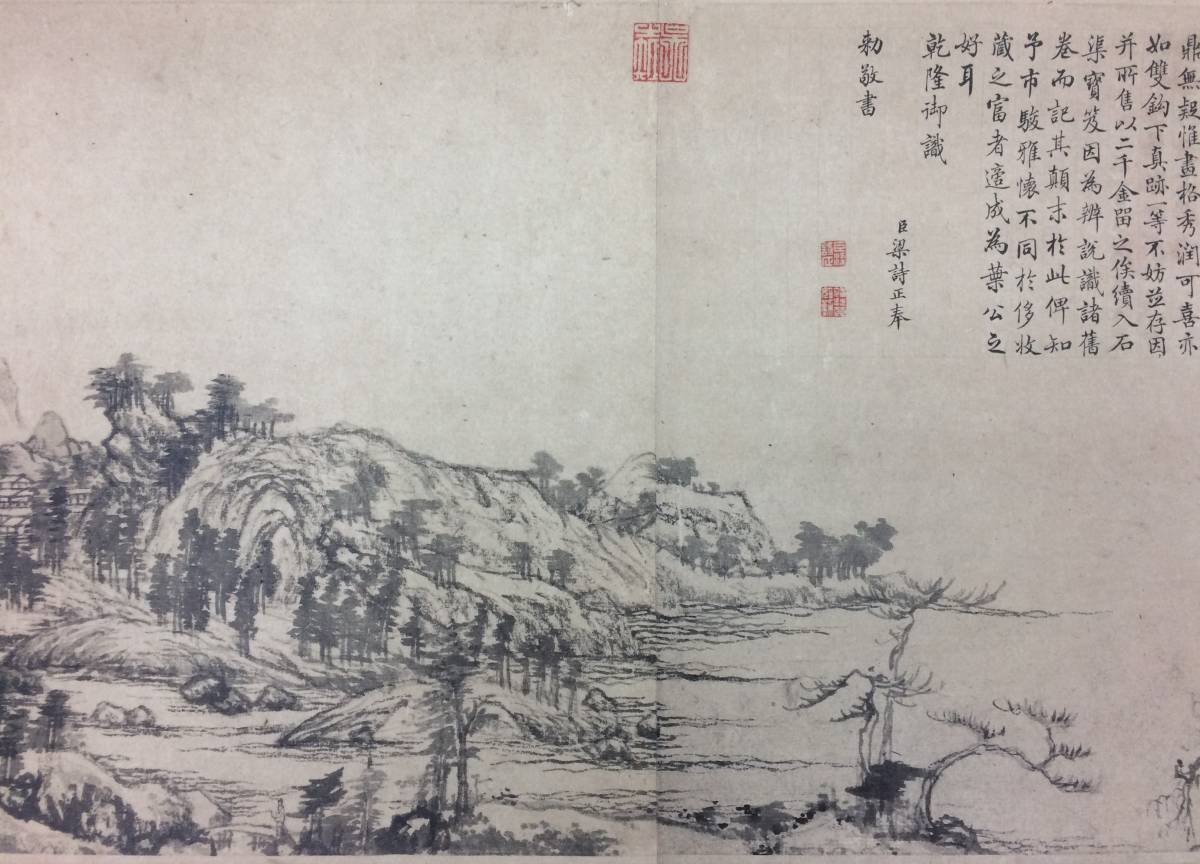 鼎無疑惟畫格秀潤可喜亦
如雙鈎下真跡一等不妨並存因
并所售以二千金留之俟續入石
渠寶笈因為辨說識諸舊
卷而記其顛末於此俾知
予市駿雅懷不同於侈收
藏之富者適成為葉公之
好耳
乾隆御識
臣梁詩正奉
勅敬書